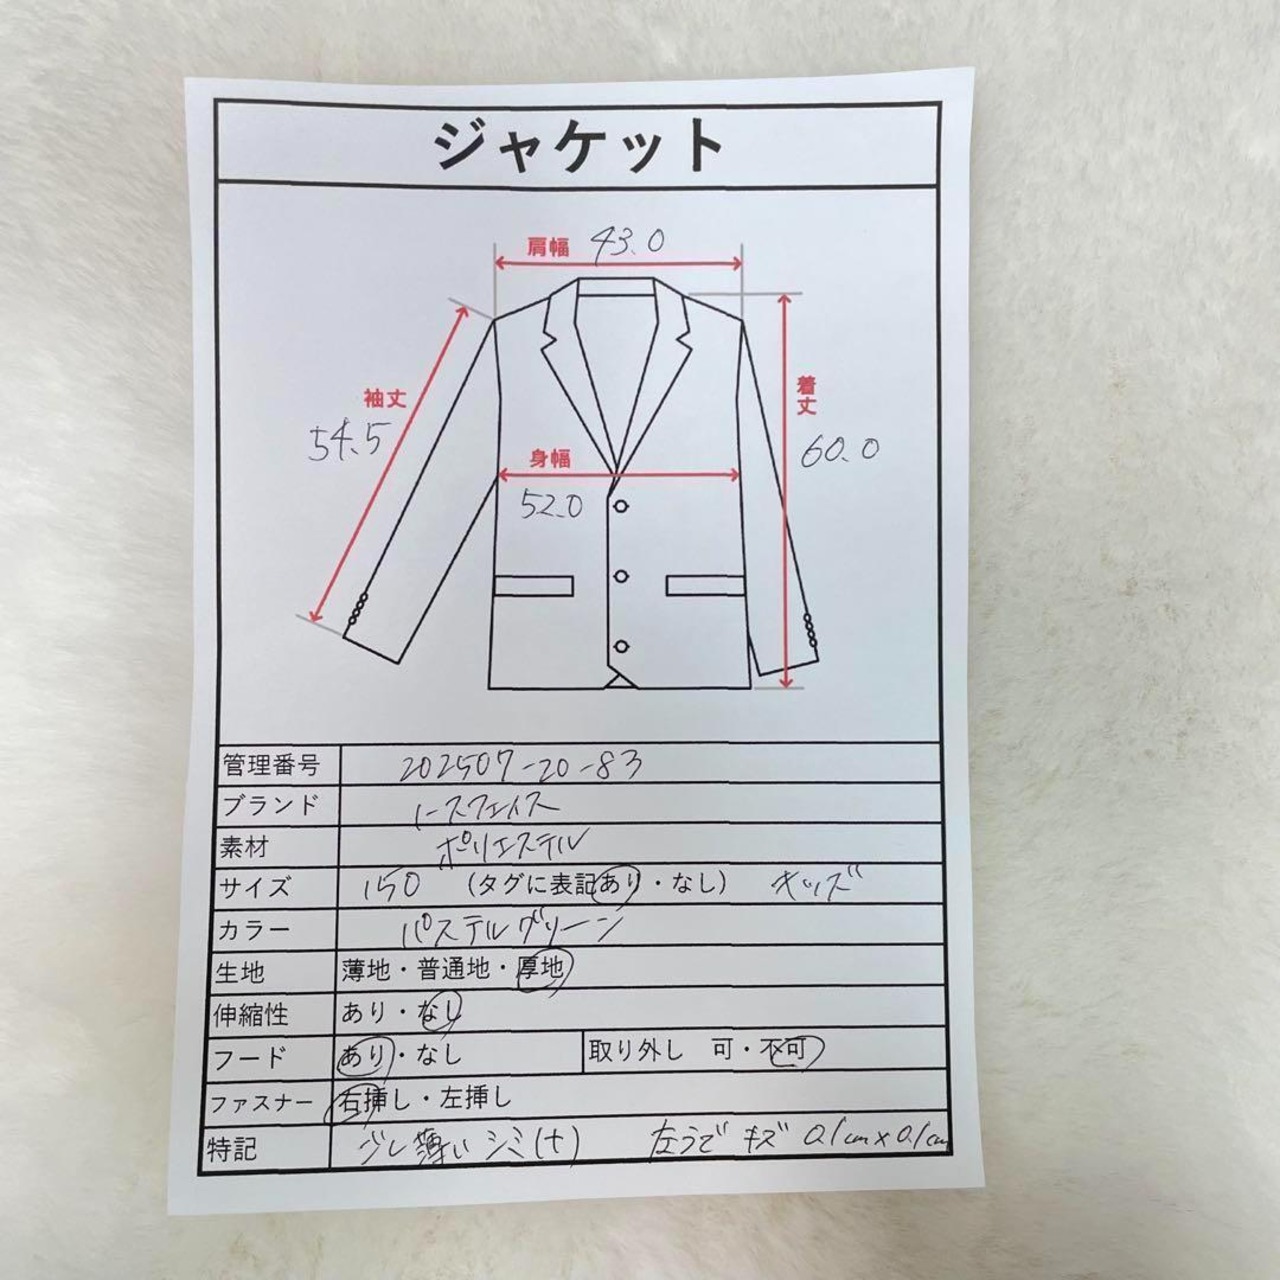 ジャケット
肩幅 43.0
袖丈
54.5
着丈
60.0
身幅
52.0
管理番号 202507-20-83
ブランド ノースフェイス
素材 ポリエステル
サイズ 150 (タグに表記あり・なし) キッズ
カラー パステルグリーン
生地 薄地・普通地・厚地
伸縮性 あり・なし
フード あり・なし 取り外し 可・不可
ファスナー 右挿し・左挿し
特記 少し薄いシミ(+) 左うで キズ 0.1cm×0.1cm